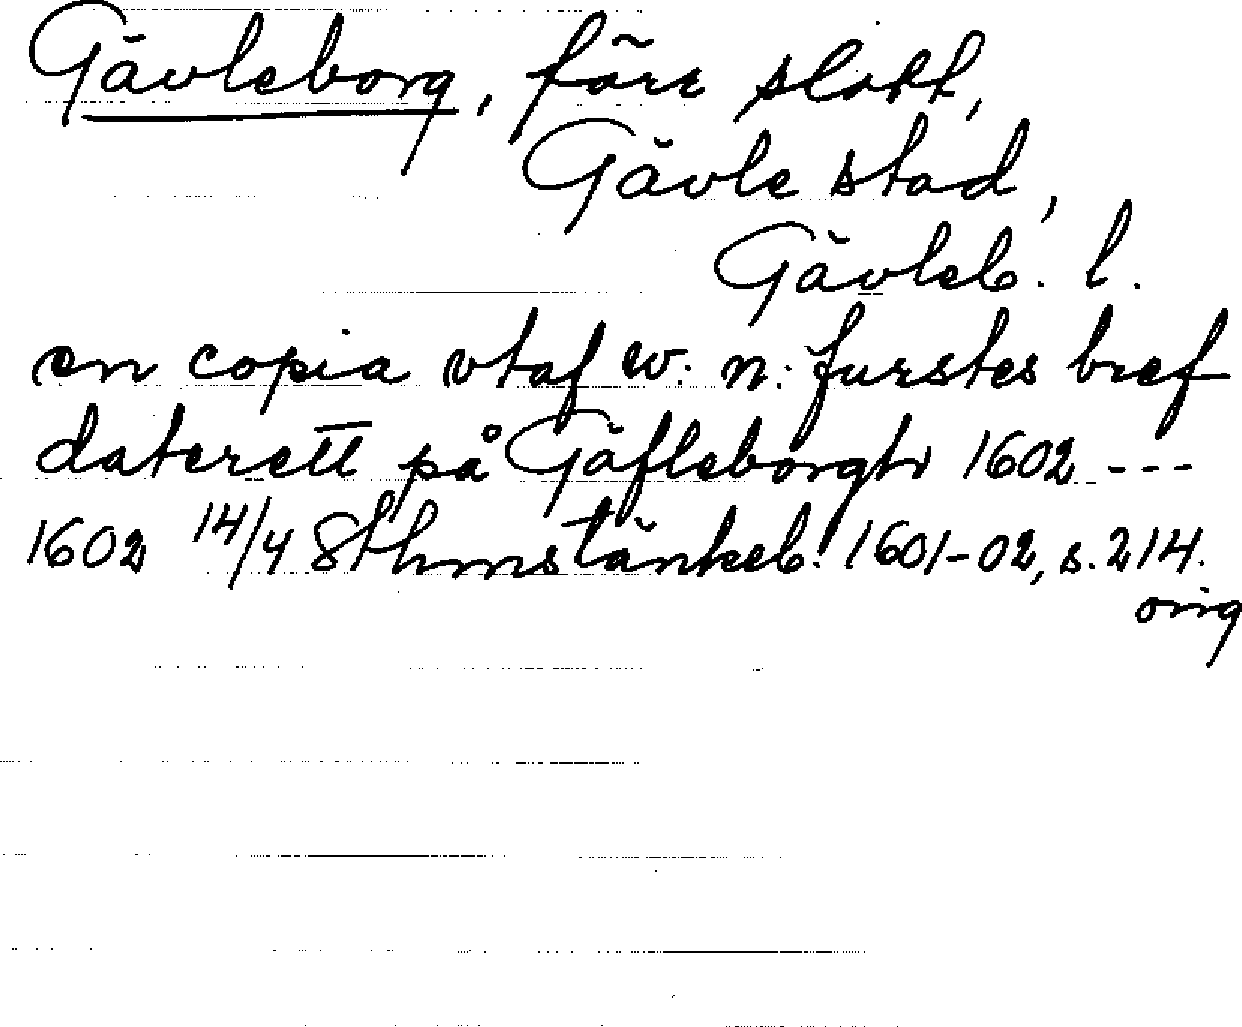 Gävleborg, förr slott,
Gävle stad,
Gävleb. l.
en copia vtaf w. n. furstes bref
daterett på Gäfleborgh 1602 ---
1602 14/4 Sthmstänkeb. 1601-02, s. 214.
orig